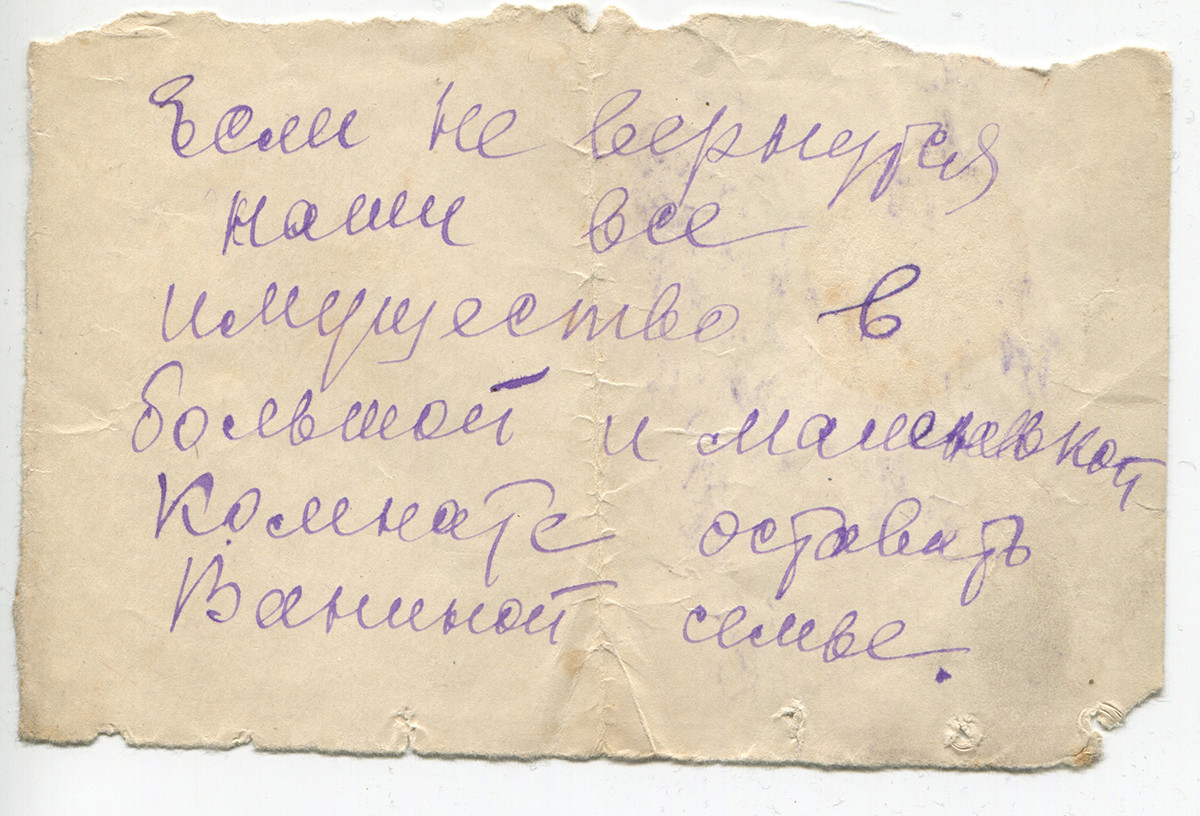 Если не вернутся
наши все
имущество в
большой и маленькой
комнате оставить
Ваниной семье.